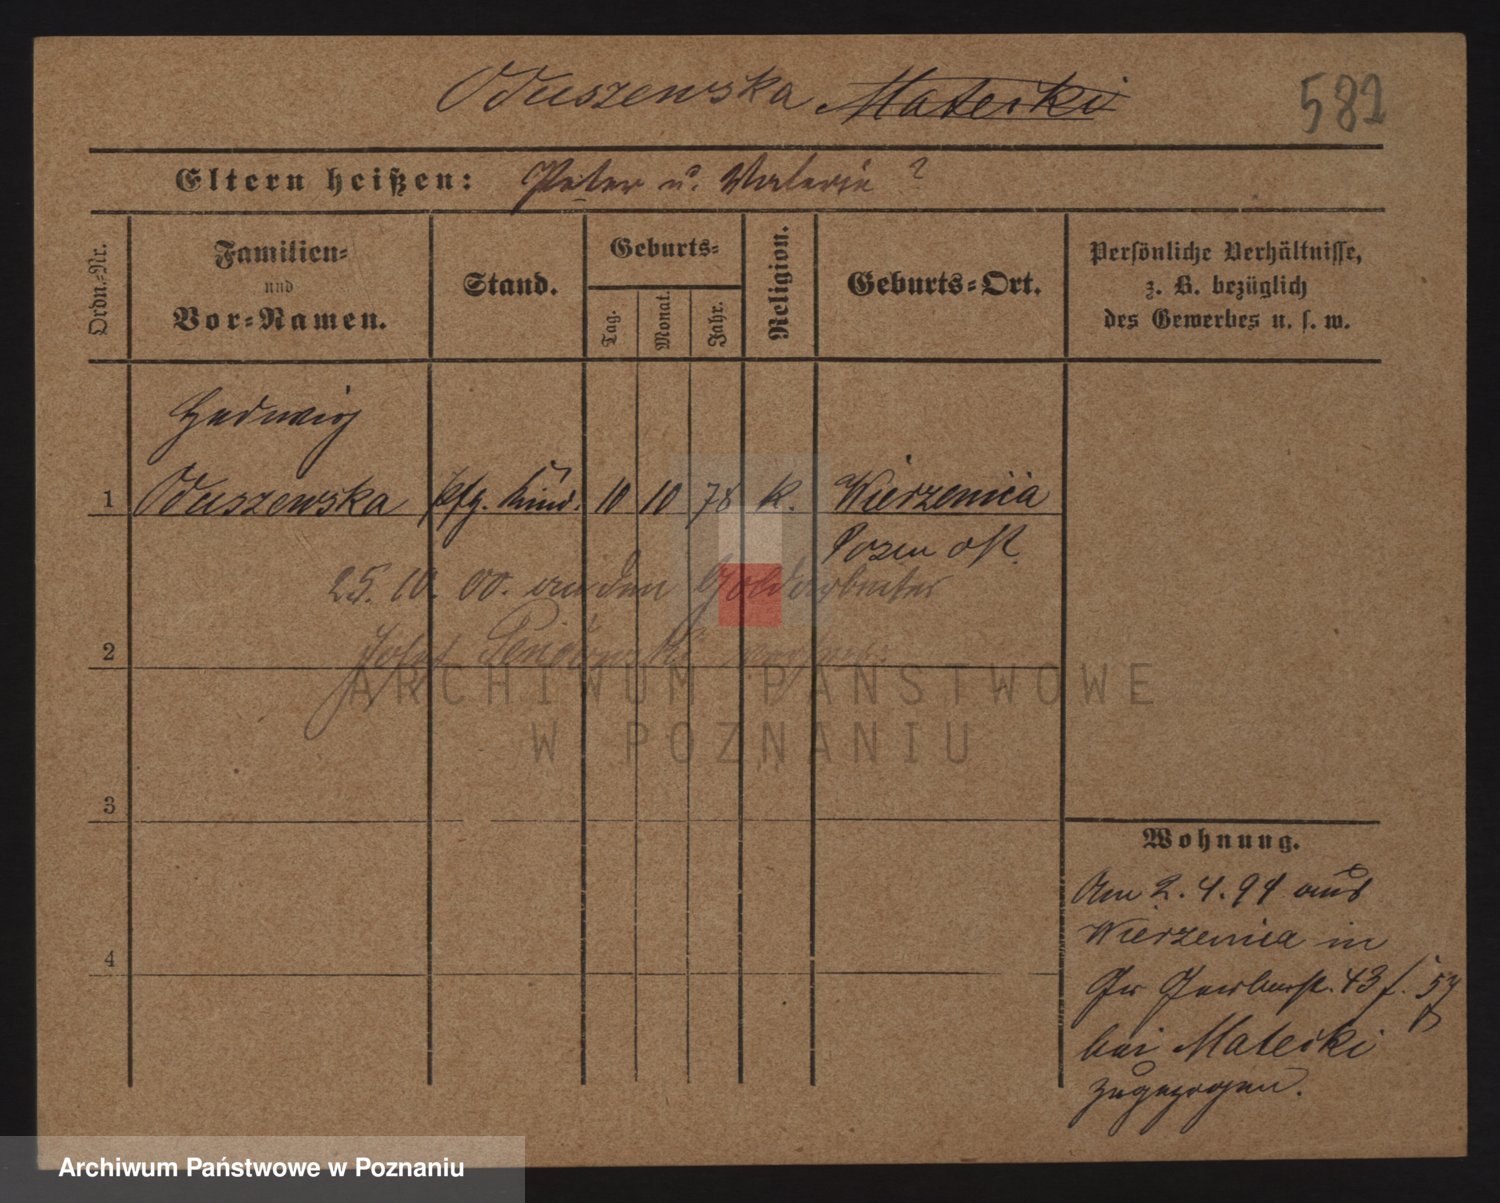 Oduszewska Matecki 582
Eltern heißen: Peter u. Valerie ?
Ordn.-Nr.
Familien-
und
Vor-Namen.
Stand.
Geburts-
Tag.
Monat.
Jahr.
Religion.
Geburts-Ort.
Persönliche Verhältnisse,
z. B. bezüglich
des Gewerbes u. s. w.
Hedwig
1 Oduszewska Pflg. Kind. 10 10 78 k. Wierzenica
Posen ost
25. 10. 00. an den Goldarbeiter
Josef
2
3
4
Wohnung.
Am 2. 4. 94 aus
Wierzenica in
Gr Gerberst. 43
bei Matecki
zugezogen.
ARCHIWUM PAŃSTWOWE
W POZNANIU
Archiwum Państwowe w Poznaniu